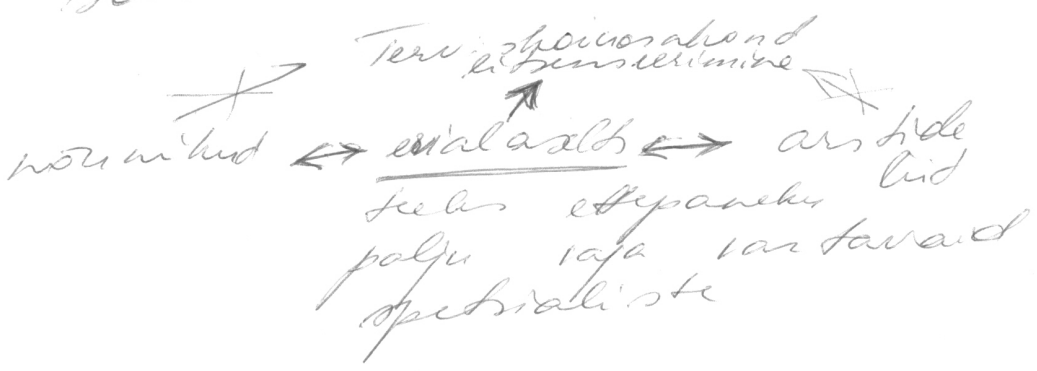 Terv. hoiuosakond
litsenseerimine
nõunikud erialaselts arstide
liit
teeks ettepaneku
palju vaja vastavaid
spetsialiste